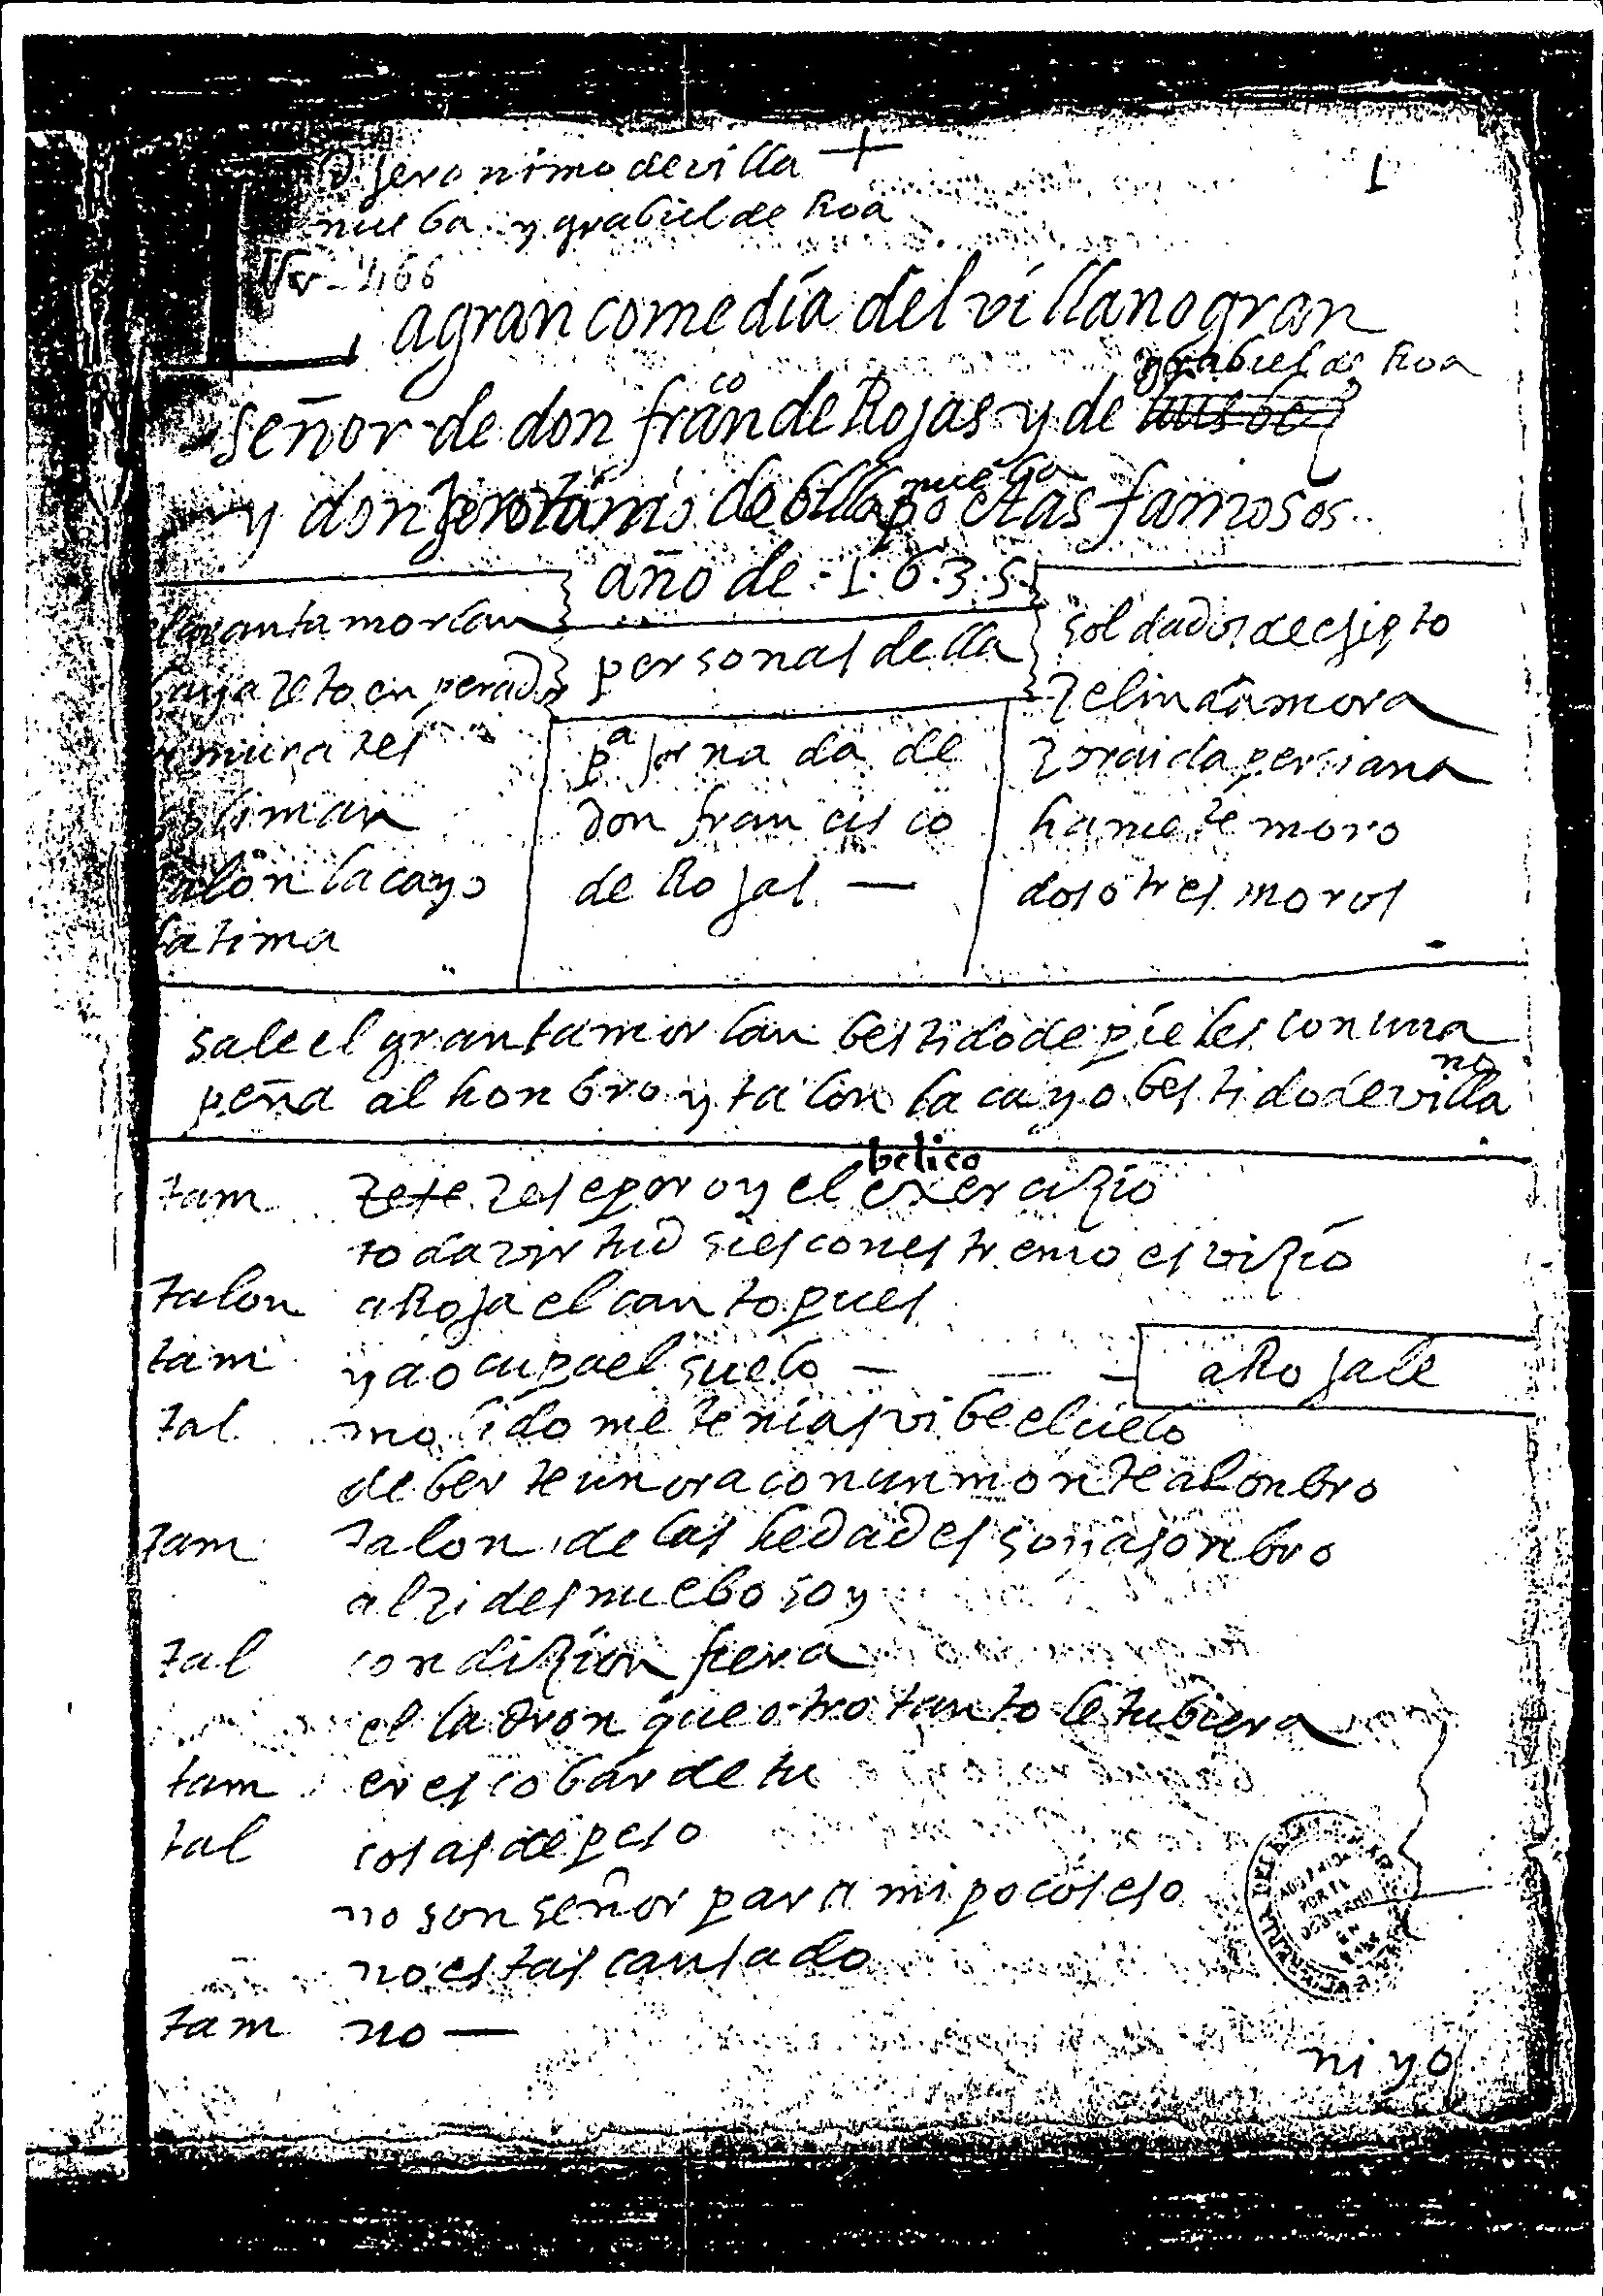 D. Jeronimo de villa +
nueba y grabiel de Roa
1
Vv-466
la gran comedia del villano gran
y grabiel de Roa
señor de don franco de Rojas y de
y don Jeronimo de billa nueba poetas famosos
año de 1635
personas della
el gran tamorlan
bayazeto enperador
amurates
soliman
talon lacayo
fatima
pa jornada de
don francisco
de Rojas —
soldados de ejipto
zelinda mora
zoraida persiana
hamete moro
dos o tres moros
sale el gran tamorlan bestido de pieles con una
peña al honbro y talon lacayo bestido de villano
tam zese zese por oy el belico exercizio
toda virtud si es con estremo es vizio
talon aRoja el canto pues
tam ya ocupa el suelo — aRojale
tal molido me tenias vibe el cielo
de berte un ora con un monte al onbro
tam talon de las hedades soi asonbro
alzides nuebo soy
tal condizion fiera
el ladron que otro tanto le tubiera
tam eres cobarde tu
tal cosas de peso
no son señor para mi poco seso
no estas cansado
tam no —
ni yo